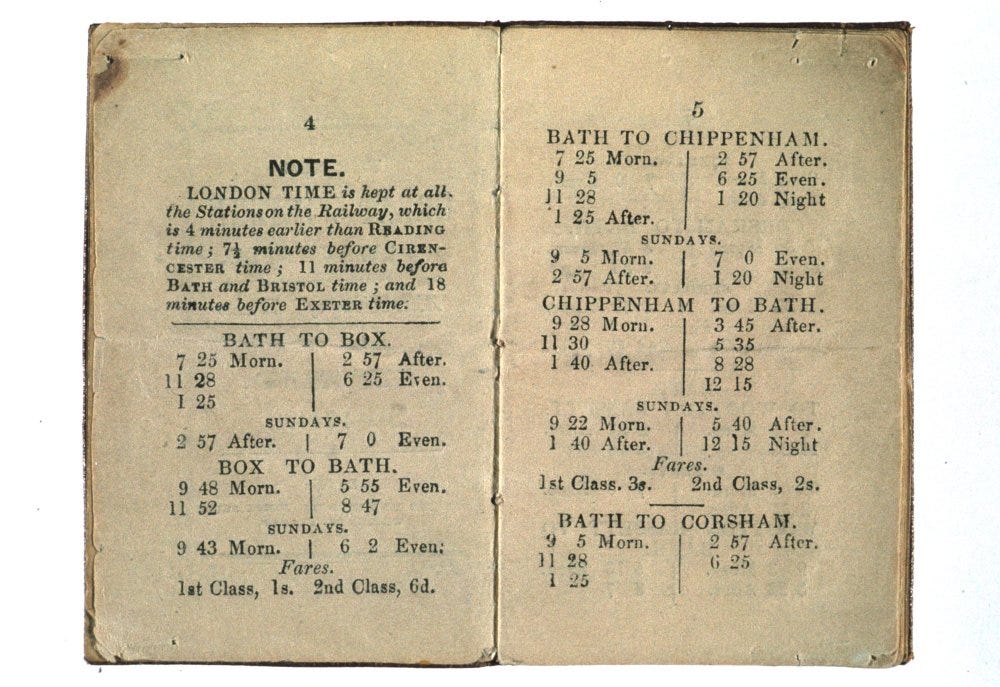 4
NOTE.
LONDON TIME is kept at all
the Stations on the Railway, which
is 4 minutes earlier than READING
time; 7½ minutes before CIREN-
CESTER time; 11 minutes before
BATH and BRISTOL time; and 18
minutes before EXETER time.
BATH TO BOX.
7 25 Morn. 2 57 After.
11 28 6 25 Even.
1 25
SUNDAYS.
2 57 After. 7 0 Even.
BOX TO BATH.
9 48 Morn. 5 55 Even.
11 52 8 47
SUNDAYS.
9 43 Morn. 6 2 Even;
Fares.
1st Class, 1s. 2nd Class, 6d.
5
BATH TO CHIPPENHAM.
7 25 Morn. 2 57 After.
9 5 6 25 Even.
11 28 1 20 Night
1 25 After.
SUNDAYS.
9 5 Morn. 7 0 Even.
2 57 After. 1 20 Night
CHIPPENHAM TO BATH.
9 28 Morn. 3 45 After.
11 30 5 35
1 40 After. 8 28
12 15
SUNDAYS.
9 22 Morn. 5 40 After.
1 40 After. 12 15 Night
Fares.
1st Class. 3s. 2nd Class, 2s.
BATH TO CORSHAM.
9 5 Morn. 2 57 After.
11 28 6 25
1 25